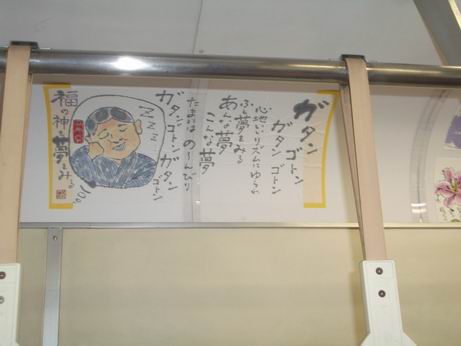 ガタン
ゴトン
ガタン
ゴトン
心地よいリズムにゆられ
ふと夢をみる
あんな夢
こんな夢
たまには のーんびり
ガタン
ゴトン
ガタン
ゴトン
ZZZZ
福の神も夢をみる